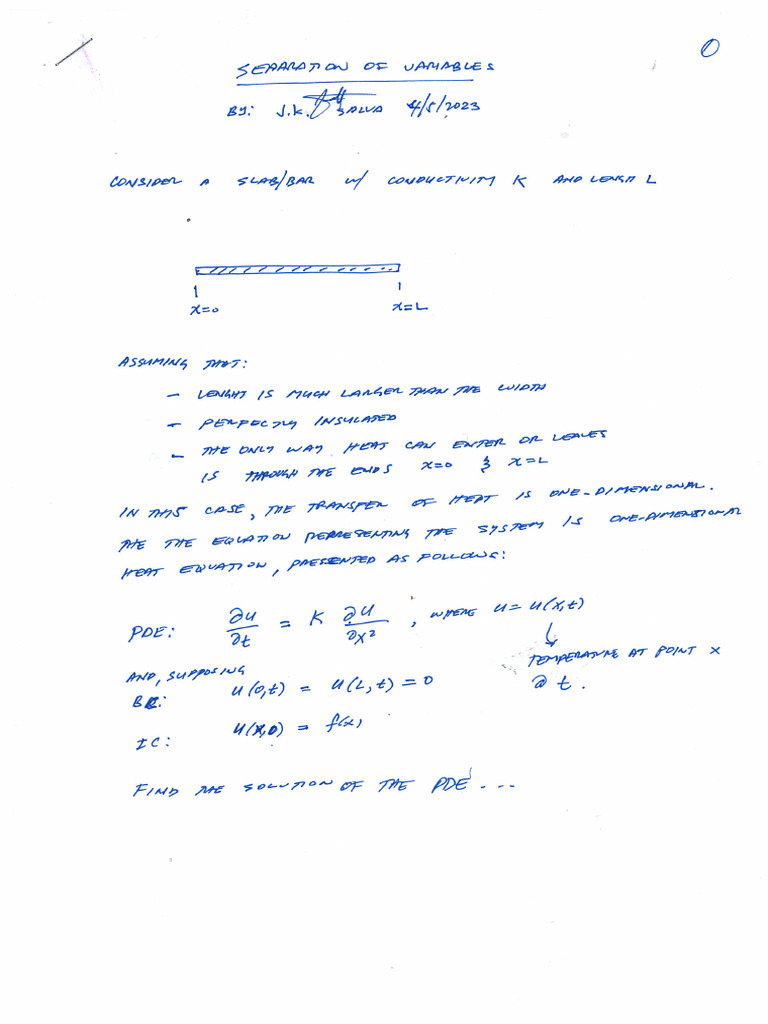 ①
SEPARATION OF VARIABLES
BY: J.K. SALVA 4/5/2023
CONSIDER A SLAB/BAR W/ CONDUCTIVITY K AND LENGTH L
x=0 x=L
ASSUMING THAT:
- LENGHT IS MUCH LARGER THAN THE WIDTH
- PERFECTLY INSULATED
- THE ONLY WAY HEAT CAN ENTER OR LEAVES
IS THROUGH THE ENDS x=0 & x=L
IN THIS CASE, THE TRANSFER OF HEAT IS ONE-DIMENSIONAL.
THE THE EQUATION REPRESENTING THE SYSTEM IS ONE-DIMENSIONAL
HEAT EQUATION, PRESENTED AS FOLLOWS:
PDE: ∂u/∂t = K ∂u/∂x², WHERE u = u(x,t)
TEMPERATURE AT POINT x
@ t.
AND, SUPPOSING
BC: u(0,t) = u(L,t) = 0
IC: u(x,0) = f(x)
FIND THE SOLUTION OF THE PDE ...